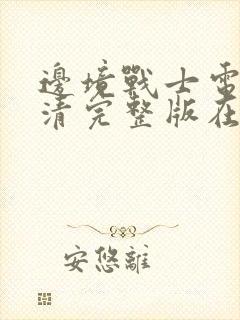 邊境戰士電
清完整版在
安悠離